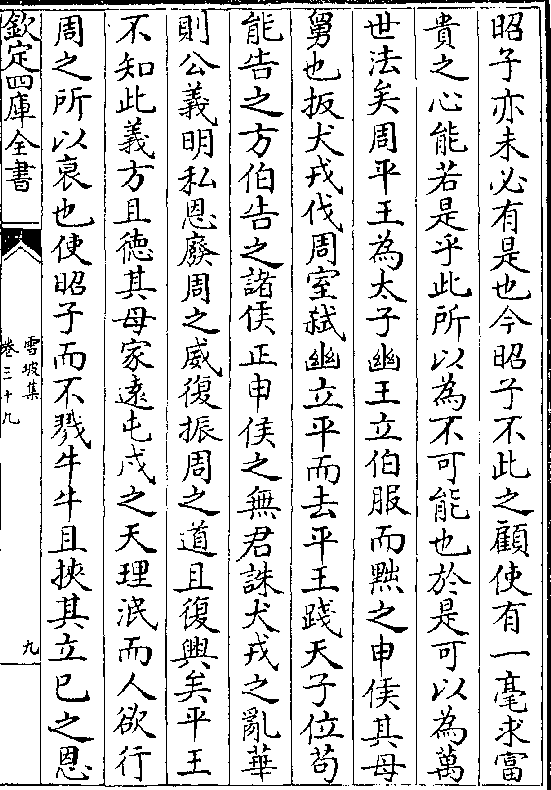 昭子亦未必有是也今昭子不此之顧使有一毫求富
貴之心能若是乎此所以為不可能也於是可以為萬
世法矣周平王為太子幽王立伯服而黜之申侯其母
舅也扳犬戎伐周室弑幽立平而去平王踐天子位苟
能告之方伯告之諸侯正申侯之無君誅犬戎之亂華
則公義明私恩廢周之威復振周之道且復興矣平王
不知此義方且徳其母家遠屯戍之天理泯而人欲行
周之所以衰也使昭子而不戮牛牛且挾其立己之恩
欽定四庫全書
雪坡集
卷三十九
九